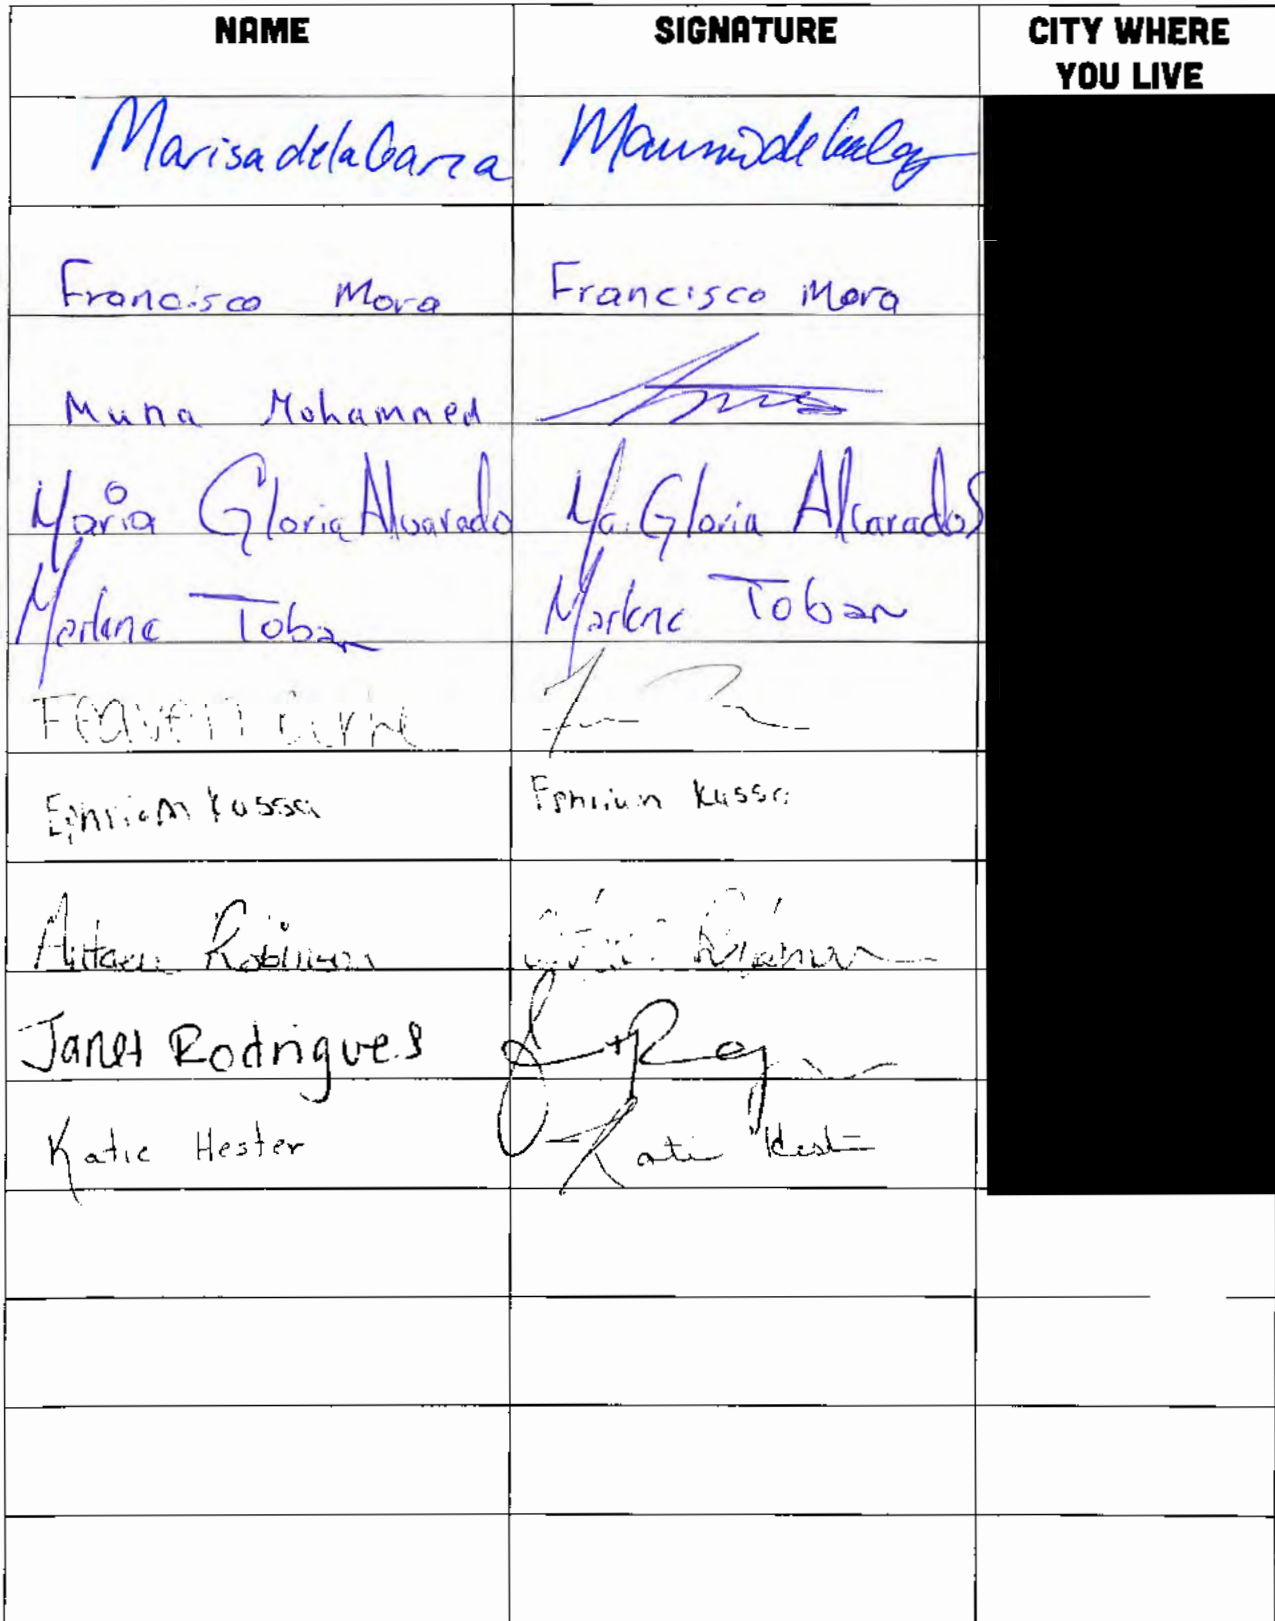 NAME SIGNATURE CITY WHERE YOU LIVE
Marisa dela Garza
Francisco Mora Francisco Mora
Muna Mohammed
Maria Gloria Alvarado Ma. Gloria Alvarado
Marlene Tobar Marlene Tobar
Feaven
Ephriam Kussa Ephriam Kussa
Robinson
Janet Rodrigues
Katie Hester Katie Hester